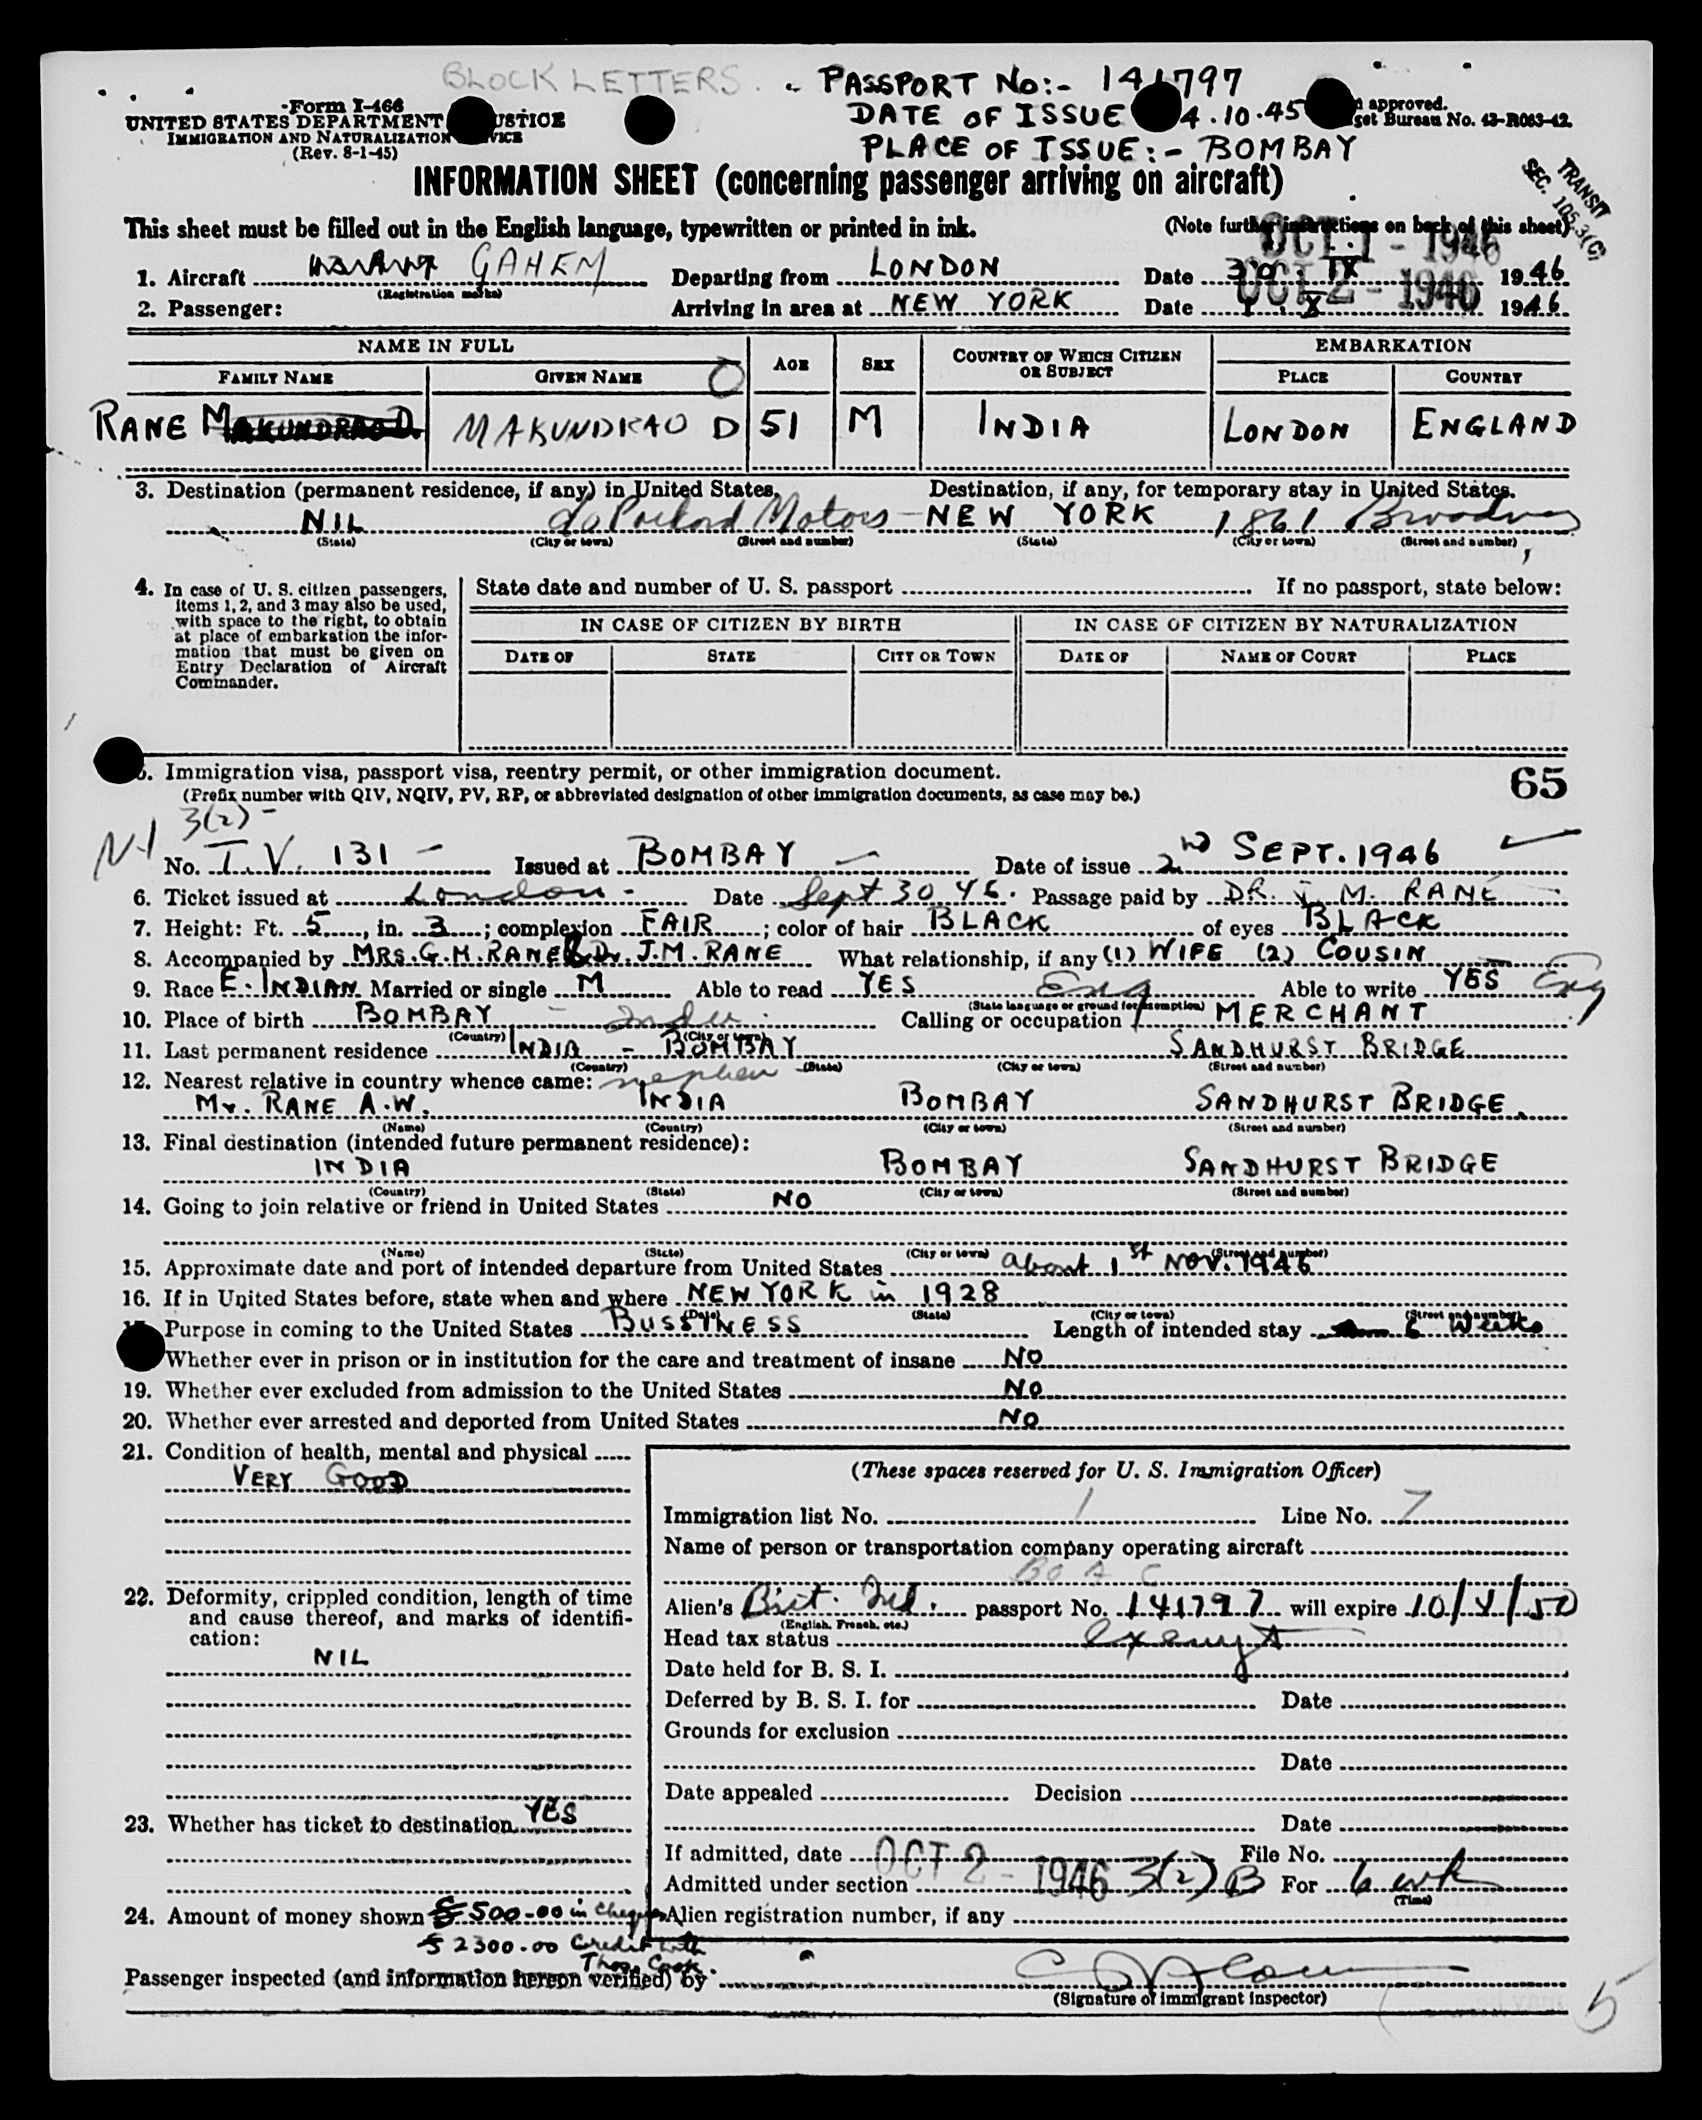 BLOCK LETTERS. PASSPORT No:- 141797
Form I-466
UNITED STATES DEPARTMENT USTICE
DATE OF ISSUE 4.10.45
approved.
get Bureau No. 43-R063-42.
IMMIGRATION AND NATURALIZATION VICE
(Rev. 8-1-45)
PLACE OF ISSUE:- BOMBAY
INFORMATION SHEET (concerning passenger arriving on aircraft)
TRANSIT
SEC. 105.3(C)
This sheet must be filled out in the English language, typewritten or printed in ink. (Note further instructions on back of this sheet)
OCT 1 - 1946
1. Aircraft GAHEM Departing from LONDON Date 30. IX 1946
(Registration marks)
OCT 2 - 1946
2. Passenger: Arriving in area at NEW YORK Date 1. X 1946
NAME IN FULL AGE SEX COUNTRY OF WHICH CITIZEN OR SUBJECT EMBARKATION
FAMILY NAME GIVEN NAME PLACE COUNTRY
RANE MAKUNDRAO D. MAKUNDRAO D 51 M INDIA LONDON ENGLAND
3. Destination (permanent residence, if any) in United States. Destination, if any, for temporary stay in United States.
NIL c/o Packard Motors - NEW YORK 1861 Broadway
(State) (City or town) (Street and number) (State) (City or town) (Street and number)
4. In case of U. S. citizen passengers, items 1, 2, and 3 may also be used, with space to the right, to obtain at place of embarkation the information that must be given on Entry Declaration of Aircraft Commander.
State date and number of U. S. passport If no passport, state below:
IN CASE OF CITIZEN BY BIRTH IN CASE OF CITIZEN BY NATURALIZATION
DATE OF STATE CITY OR TOWN DATE OF NAME OF COURT PLACE
5. Immigration visa, passport visa, reentry permit, or other immigration document. 65
(Prefix number with QIV, NQIV, PV, RP, or abbreviated designation of other immigration documents, as case may be.)
3(2) -
N-1 No. T.V. 131 - Issued at BOMBAY - Date of issue 2nd SEPT. 1946
6. Ticket issued at London - Date Sept 30 46. Passage paid by DR. J. M. RANE
7. Height: Ft. 5, in. 3; complexion FAIR; color of hair BLACK of eyes BLACK
8. Accompanied by MRS. G. M. RANE & Dr. J.M. RANE What relationship, if any (1) WIFE (2) COUSIN
9. Race E. INDIAN Married or single M Able to read YES Eng Able to write YES Eng
(State language or ground for exemption)
10. Place of birth BOMBAY - India. Calling or occupation MERCHANT
(Country) (City or town)
11. Last permanent residence INDIA - BOMBAY SANDHURST BRIDGE
(Country) (State) (City or town) (Street and number)
12. Nearest relative in country whence came: nephew
Mr. RANE A.W. INDIA BOMBAY SANDHURST BRIDGE.
(Name) (Country) (City or town) (Street and number)
13. Final destination (intended future permanent residence):
INDIA BOMBAY SANDHURST BRIDGE
(Country) (State) (City or town) (Street and number)
14. Going to join relative or friend in United States NO
(Name) (State) (City or town) (Street and number)
15. Approximate date and port of intended departure from United States about 1st NOV. 1946
16. If in United States before, state when and where NEW YORK in 1928
(Date) (State) (City or town) (Street and number)
Purpose in coming to the United States BUSSINESS Length of intended stay 6 Weeks
Whether ever in prison or in institution for the care and treatment of insane NO
19. Whether ever excluded from admission to the United States NO
20. Whether ever arrested and deported from United States NO
21. Condition of health, mental and physical
VERY GOOD
22. Deformity, crippled condition, length of time and cause thereof, and marks of identification:
NIL
23. Whether has ticket to destination YES
24. Amount of money shown $ 500-00 in cheques
$ 2300-00 Credit with
Thos. Cook
(These spaces reserved for U. S. Immigration Officer)
Immigration list No. 1 Line No. 7
Name of person or transportation company operating aircraft
BOAC
Alien's Brit. Ind. passport No. 141797 will expire 10/4/50
(English, French, etc.)
Head tax status exempt
Date held for B. S. I.
Deferred by B. S. I. for Date
Grounds for exclusion
Date
Date appealed Decision
Date
If admitted, date OCT 2 - 1946 File No.
Admitted under section 3(2) B For 6 wk
(Time)
Alien registration number, if any
Passenger inspected (and information hereon verified) by
(Signature of immigrant inspector)
5